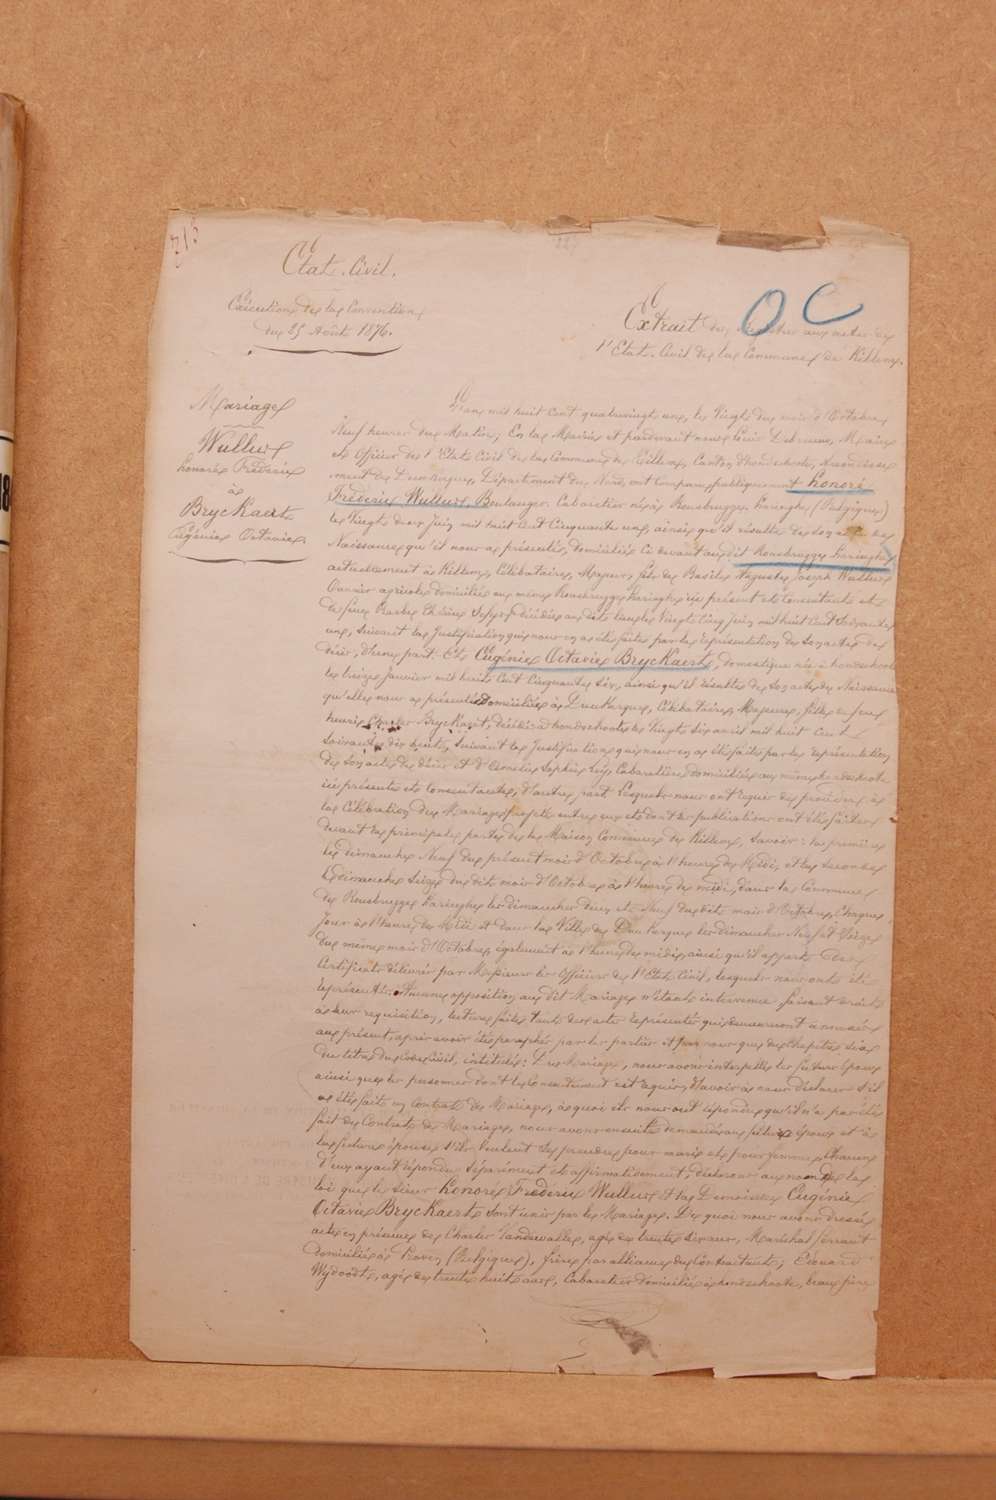 215
Etat-Civil.
Exécution de la Convention
du 25 Août 1876.
O C
Extrait du registre aux actes de
l'Etat-Civil de la Commune de Killem.
Mariage
Wullus
honoré Frédéric
à
Bryckaert
Eugénie Octavie.
L'an mil huit cent quatrevingt un, le Vingt du mois d'Octobre
Neuf heures du Matin, En la Mairie et pardevant nous Maire
et Officier de l'Etat Civil de la Commune de Killem, Canton d'hondschoote, Arrondisse
ment de Dunkerque, Département du Nord, ont Comparu publiquement honoré
Frédéric Wullus, Boulanger, Cabaretier né à Rousbrugge haringhe (Belgique)
le Vingt deux Juin mil huit Cent Cinquante un, ainsi qu'il résulte de son acte de
Naissance qu'il nous a présenté, domicilié Ci devant au dit Rousbrugge haringhe
actuellement à Killem, Célibataire, Majeur, fils de Basile Auguste Joseph Wullus
Ouvrier agricole domicilié au même Rousbrugge haringhe ici présent et Consentant et
de feue Thérèse décédée au dit lieu le Vingt Cinq Juin mil huit Cent Soixante
un, Suivant la Justification qui nous en a été faite par la représentation de son acte de
décès, d'une part. Et Eugénie Octavie Bryckaert, domestique née à hondschoote
le treize Janvier mil huit Cent Cinquante six, ainsi qu'il résulte de son acte de Naissance
qu'elle nous a présenté domiciliée à Dunkerque, Célibataire, Majeure, fille de feu
henri Charles Bryckaert, décédé à hondschoote le Vingt six avril mil huit Cent
Soixante dix huit, Suivant la Justification qui nous en a été faite par la représentation
de son acte de décès et d'Cornélie Sophie Cabaretière domiciliée au même hondschoote
ici présente et Consentante, d'autre part. Lesquels nous ont requis de procéder à
la Célébration du Mariage projeté entre eux et dont les publications ont été faites
devant la principale porte de la Maison Commune de Killem, Savoir: la première
le dimanche Neuf du présent mois d'Octobre à l'heure de Midi, et la seconde
le dimanche Seize du dit mois d'Octobre à l'heure de midi, dans la Commune
de Rousbrugge haringhe les dimanches deux et Neuf du dit mois d'Octobre, Chaque
Jour à l'heure de Midi et dans la Ville de Dunkerque les dimanches Neuf et Seize
du même mois d'Octobre, également à l'heure de midi ainsi qu'il appert des
Certificats délivrés par Messieurs les Officiers de l'Etat Civil, lesquels nous ont été
représentés. Aucune opposition au dit Mariage n'étant intervenue faisant droit
à leur requisition, lecture faite tant des actes représentés qui demeureront annexés
au présent, après avoir été paraphés par les parties et par nous que du Chapitre six
du titre du Code Civil, intitulé: Du Mariage, nous avons interpellé les futurs époux
ainsi que les personnes dont le Consentement est requis, d'avoir à nous déclarer s'il
a été fait un Contrat de Mariage, à quoi ils nous ont répondu qu'il n'a pas été
fait de Contrat de Mariage, nous avons ensuite demandé au futur époux et à
la future épouse s'ils veulent se prendre pour mari et pour femme, Chacun
d'eux ayant répondu séparément et affirmativement, déclarons au nom de la
loi que le Sieur honoré Frédéric Wullus et la Demoiselle Eugénie
Octavie Bryckaert sont unis par le Mariage. De quoi nous avons dressé
acte en présence de Charles Vandewalle, agé de trente six ans, Maréchal ferrant
domicilié à Proven (Belgique), frère par alliance du Contractant; Edouard
Wydoodt, agé de trente huit ans, Cabaretier domicilié à hondschoote, beau frère